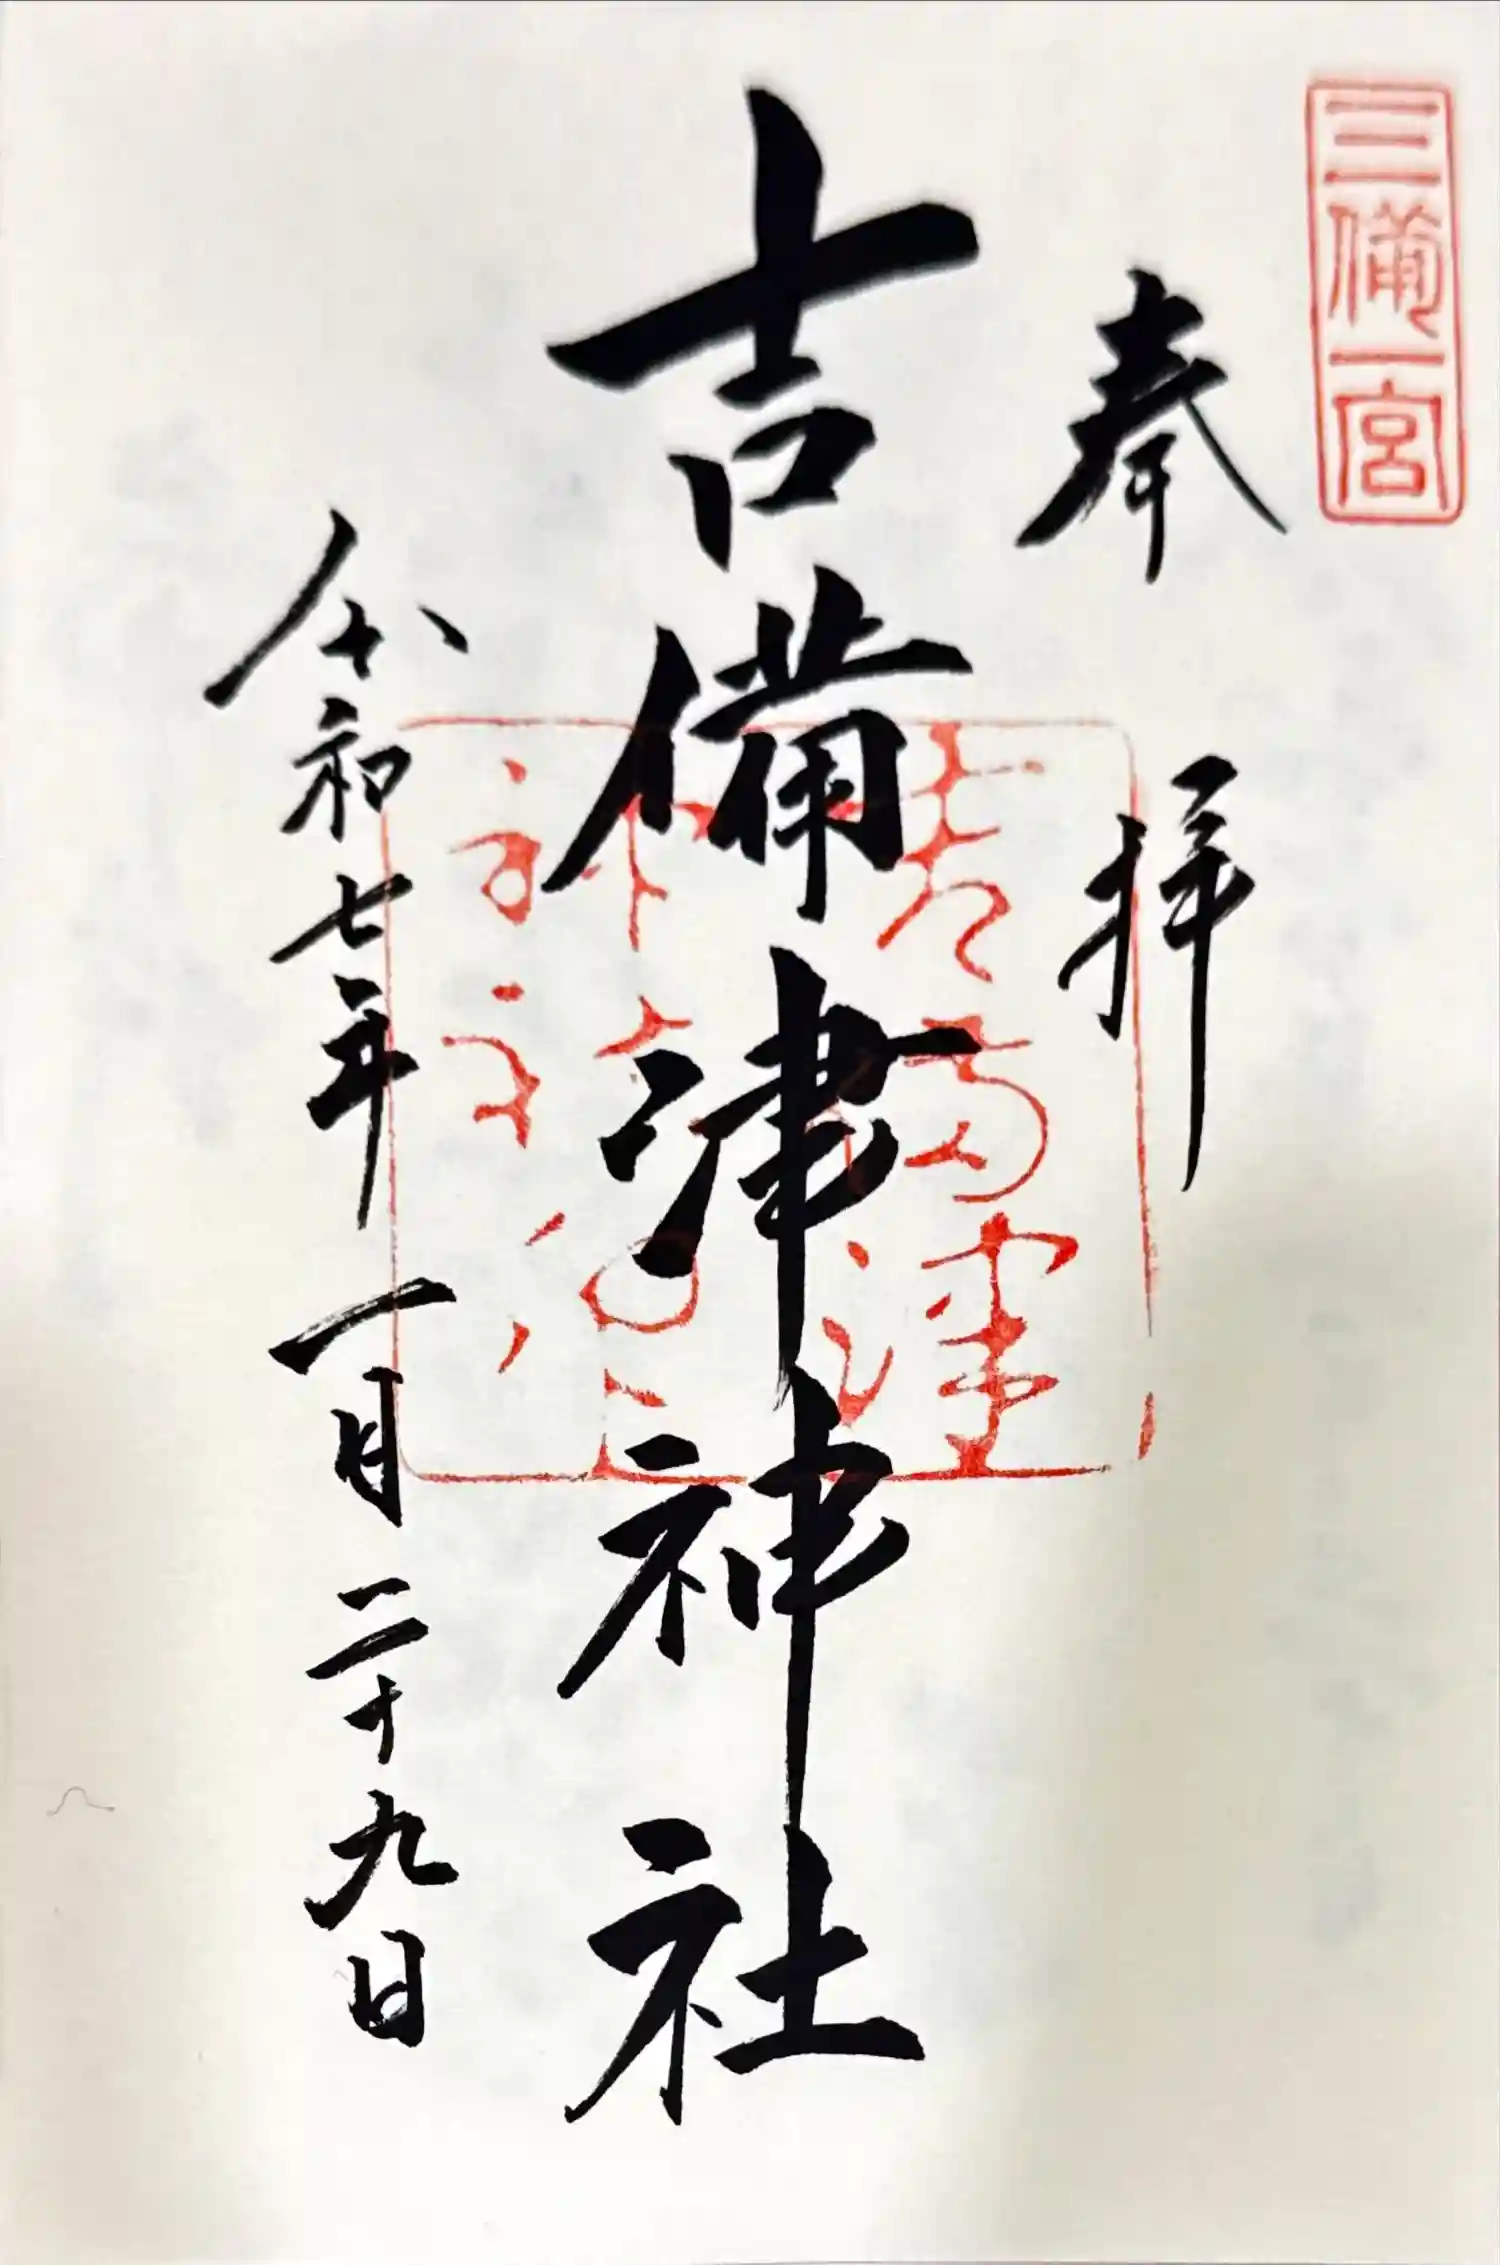 三備一宮
奉拝
吉備津神社
令和七年一月二十九日